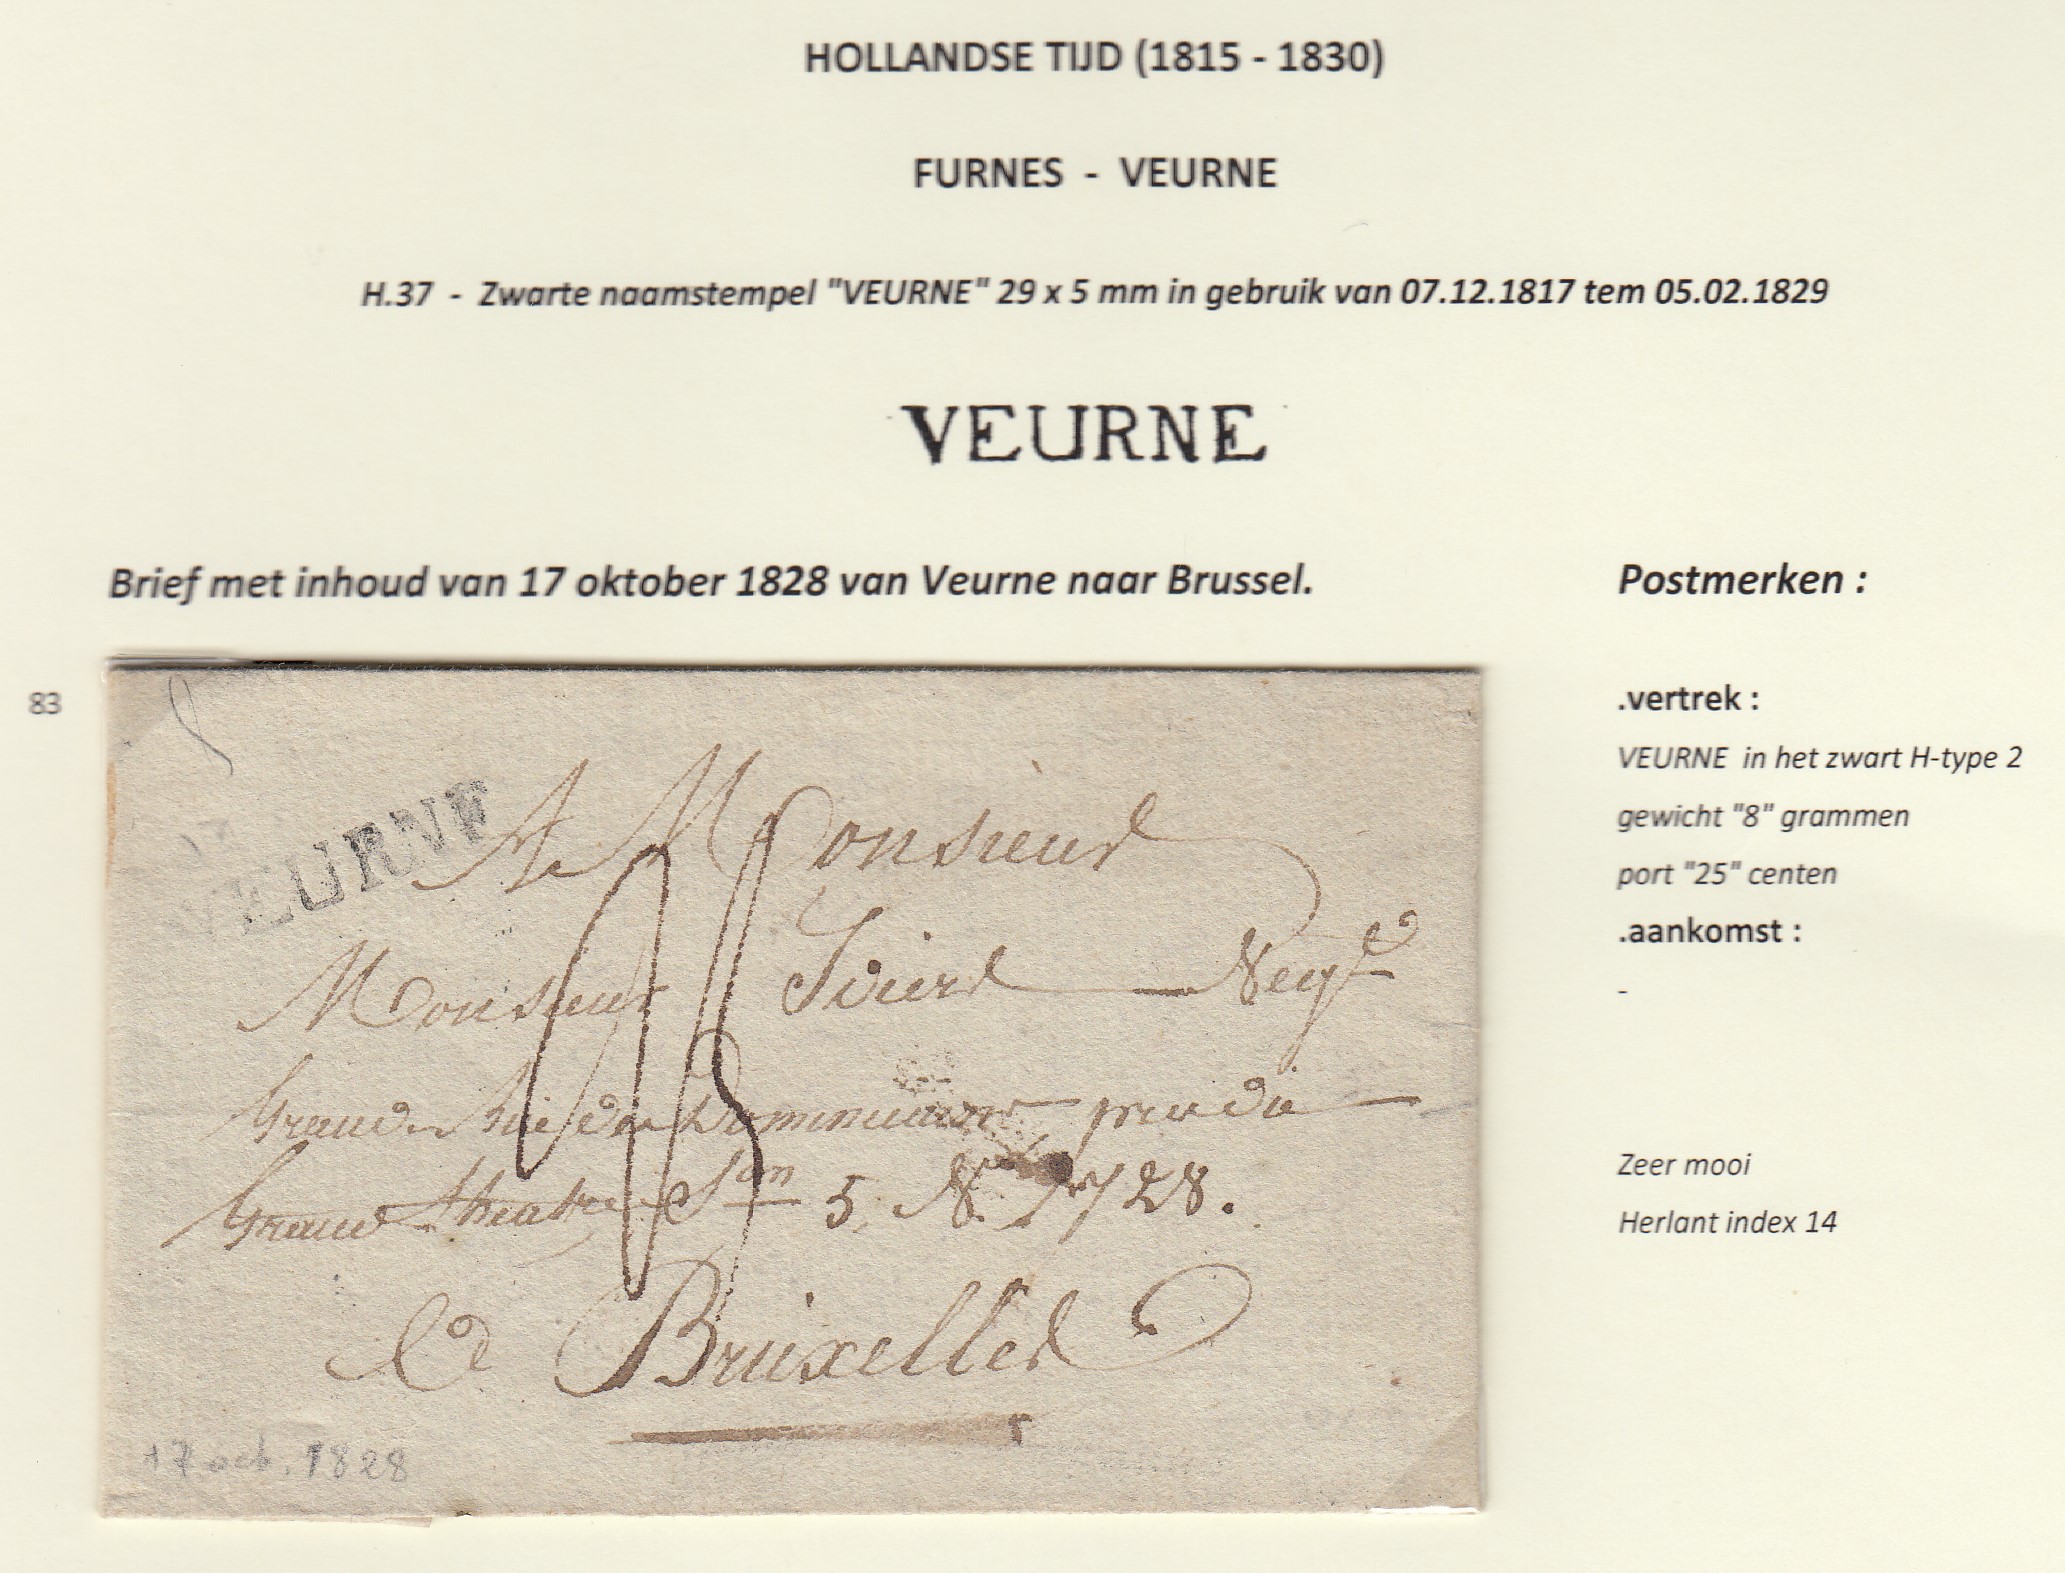 HOLLANDSE TIJD (1815 - 1830)
FURNES - VEURNE
H.37 - Zwarte naamstempel "VEURNE" 29 x 5 mm in gebruik van 07.12.1817 tem 05.02.1829
VEURNE
Brief met inhoud van 17 oktober 1828 van Veurne naar Brussel.
Postmerken :
83
.vertrek :
VEURNE in het zwart H-type 2
gewicht "8" grammen
port "25" centen
.aankomst :
-
Zeer mooi
Herlant index 14
8
VEURNE
A Monsieur
Monsieur
25
Grande Rue des
Grand theatre Son 5, N.
a Bruxelles
17 oct. 1828